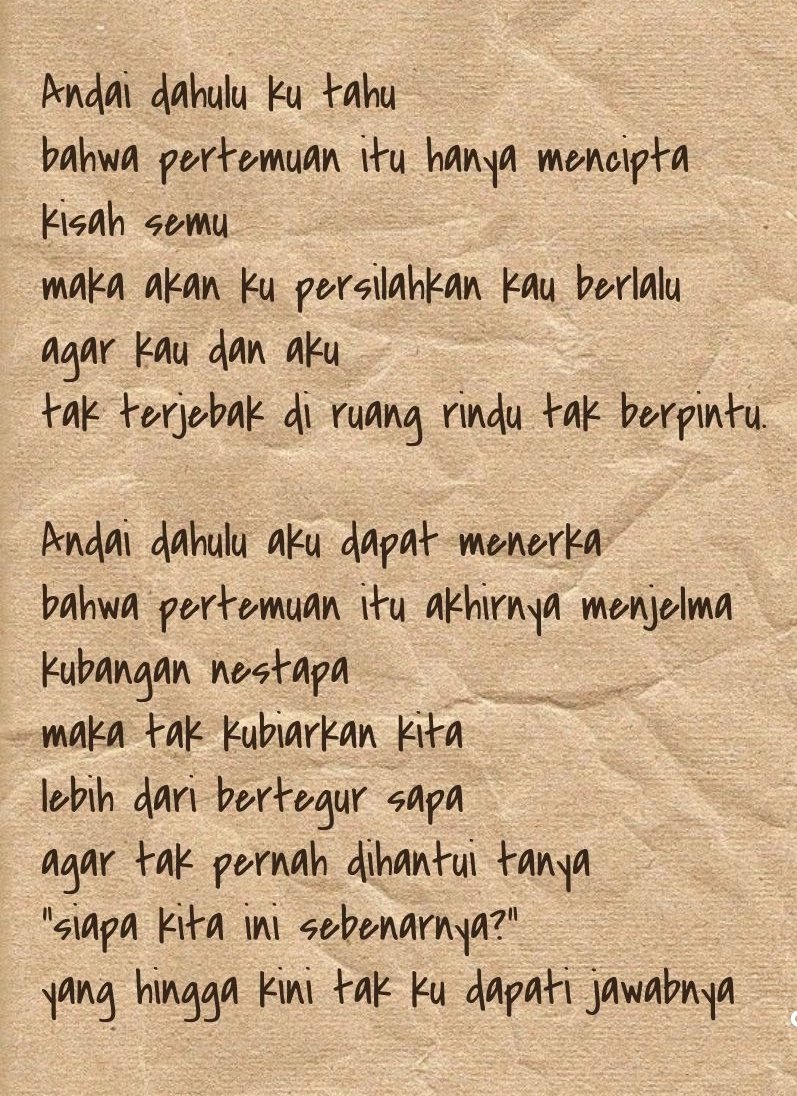 Andai dahulu ku tahu
bahwa pertemuan itu hanya mencipta
kisah semu
maka akan ku persilahkan kau berlalu
agar kau dan aku
tak terjebak di ruang rindu tak berpintu.
Andai dahulu aku dapat menerka
bahwa pertemuan itu akhirnya menjelma
kubangan nestapa
maka tak kubiarkan kita
lebih dari bertegur sapa
agar tak pernah dihantui tanya
"siapa kita ini sebenarnya?"
yang hingga kini tak ku dapati jawabnya